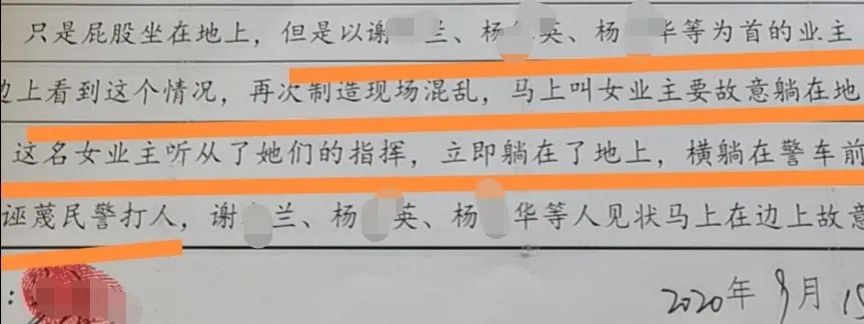 只是屁股坐在地上，但是以谢兰、杨英、杨华等为首的业主
边上看到这个情况，再次制造现场混乱，马上叫女业主要故意躺在地
这名女业主听从了她们的指挥，立即躺在了地上，横躺在警车前
诬蔑民警打人，谢兰、杨英、杨华等人见状马上在边上故意
：
2020年9月15